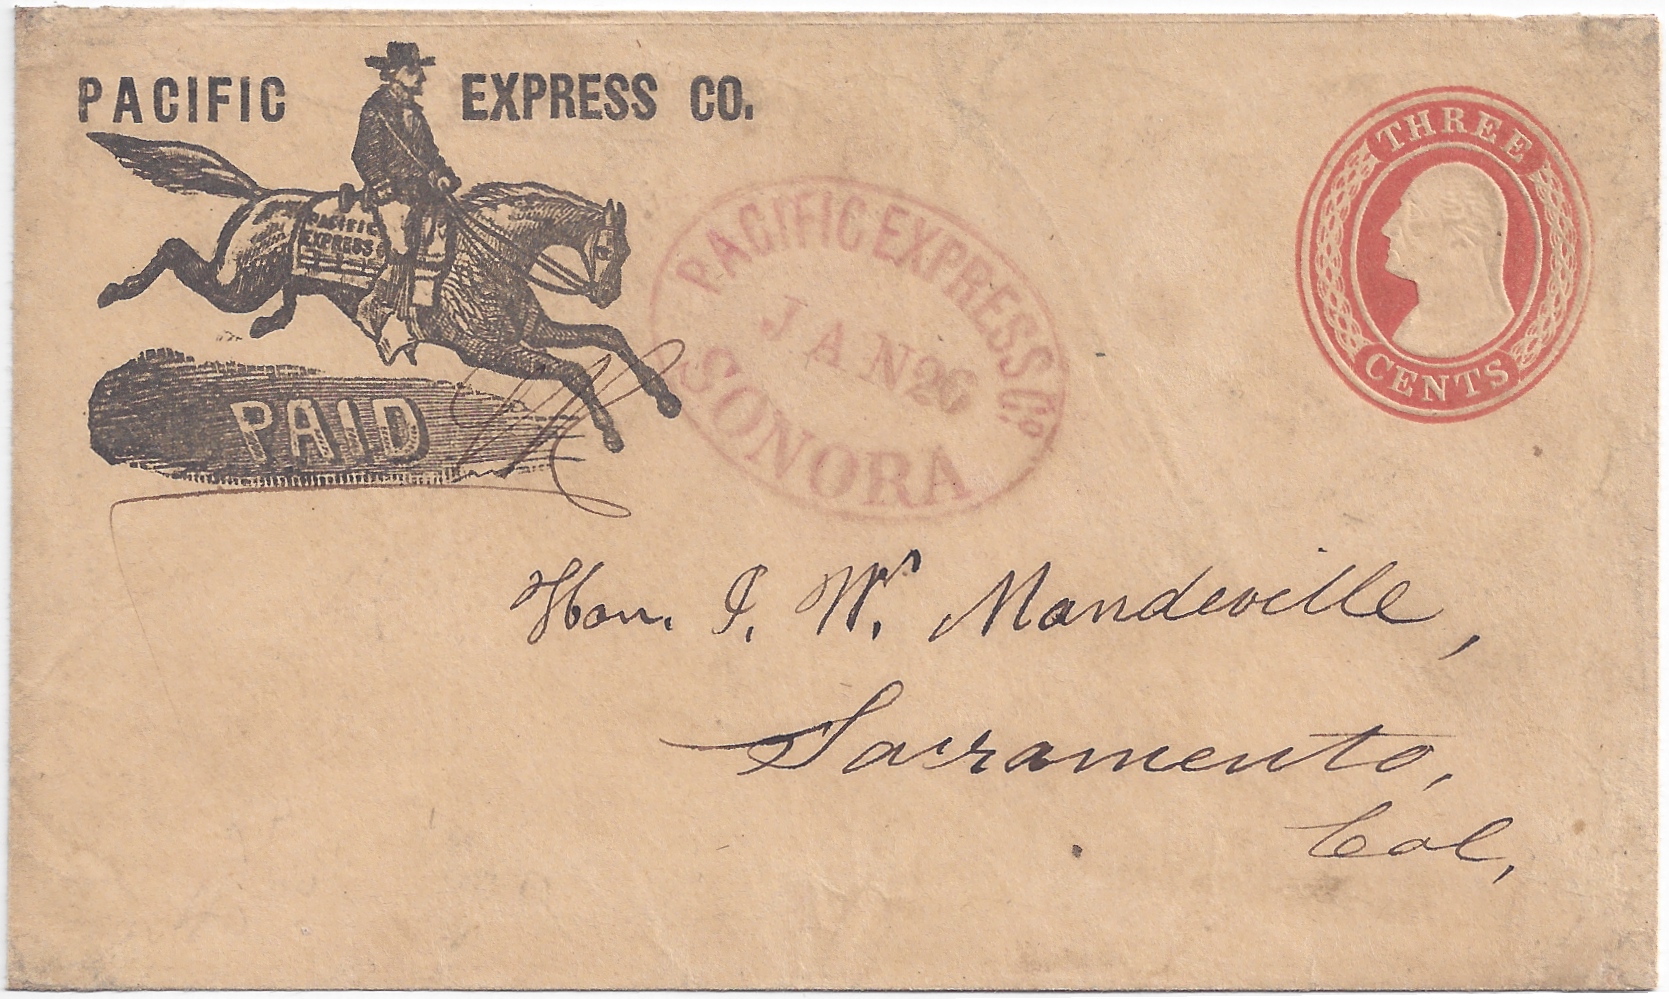 PACIFIC EXPRESS CO.
PACIFIC
EXPRESS
PAID
PACIFIC EXPRESS Co
JAN 26
SONORA
THREE
CENTS
Hon. J. W. Mandeville,
Sacramento,
Cal,